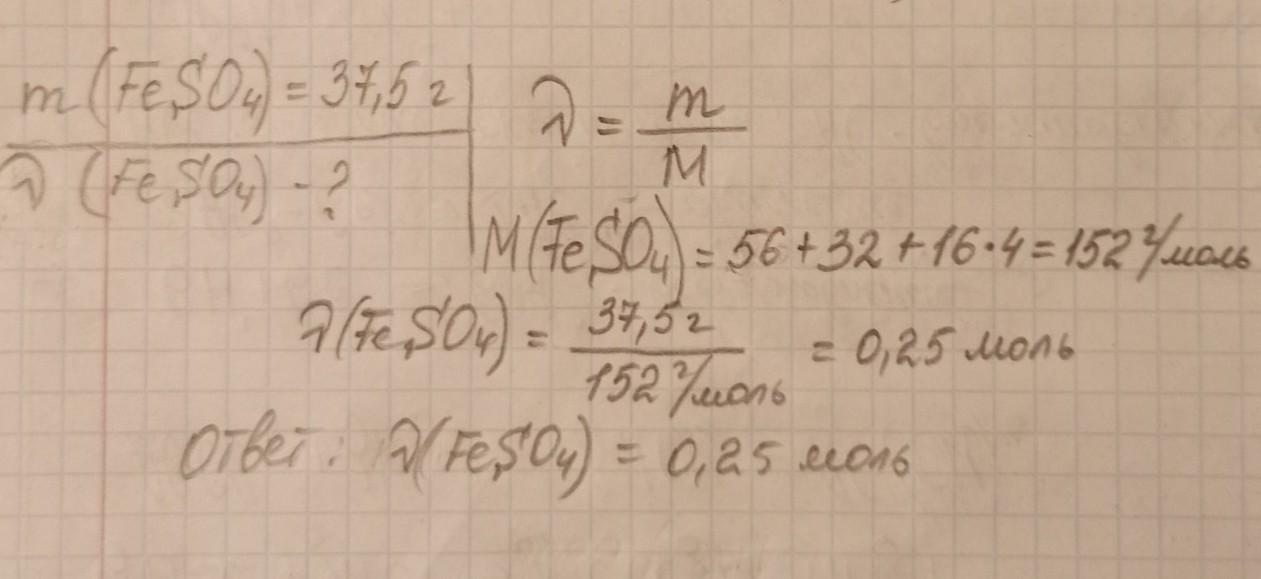 m (FeSO₄) = 37,5 г
ν (FeSO₄) - ?
ν = m/M
M(FeSO₄) = 56 + 32 + 16·4 = 152 г/моль
ν(FeSO₄) = 37,5 г / 152 г/моль = 0,25 моль
Ответ: ν(FeSO₄) = 0,25 моль